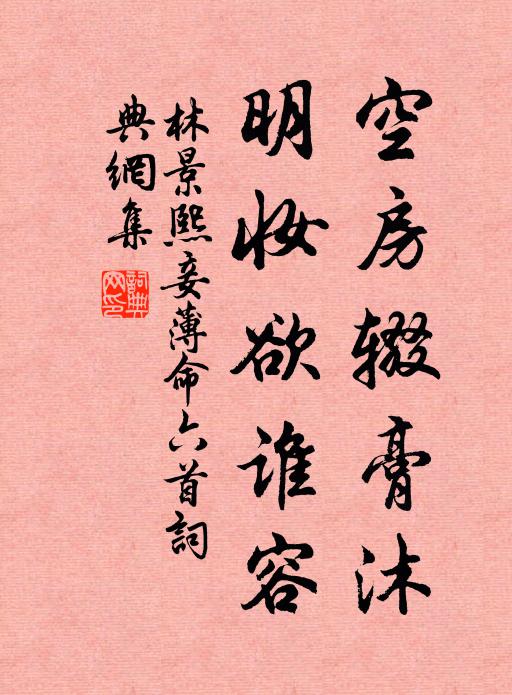 空房辍膏沐
明妆欲谁容
林景熙妾薄命六首詞
典網集
詞典网印